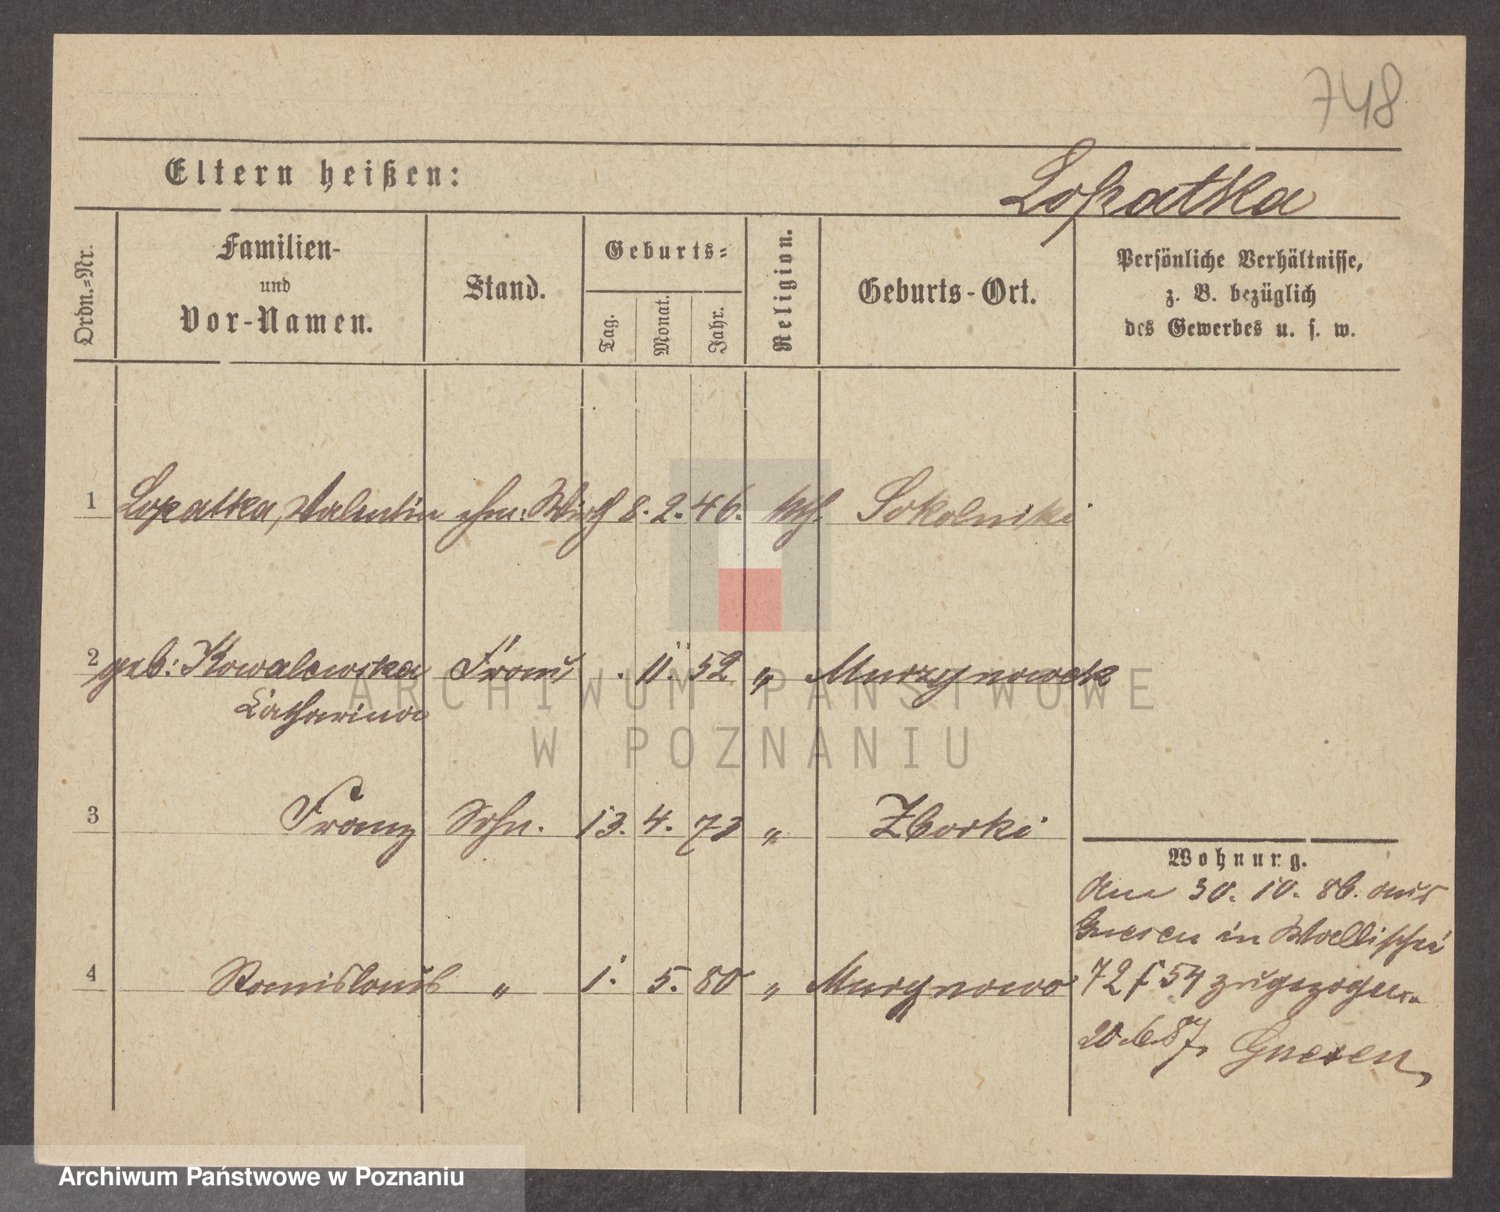 748
Eltern heißen:
Lopatka
Ordn.-Nr.
Familien-
und
Vor-Namen.
Stand.
Geburts-
Tag.
Monat.
Jahr.
Religion.
Geburts-Ort.
Persönliche Verhältnisse,
z. B. bezüglich
des Gewerbes u. s. w.
1 Lopatka, Valentin ehm: Wirth 8. 2. 46. kth. Sokolniki
2 geb: Kowalewska Frau . 11. 52 " Murzynowek
Catharina
3 Franz Sohn. 13. 4. 73 " Zborki
4 Stanislaus " 1. 5. 80 " Murzynowo
Wohnung.
Am 30. 10. 86. aus
Gnesen in Wallischei
72 f 54 zugezogen.
20.6.87. Gnesen,
ARCHIWUM PAŃSTWOWE
W POZNANIU
Archiwum Państwowe w Poznaniu